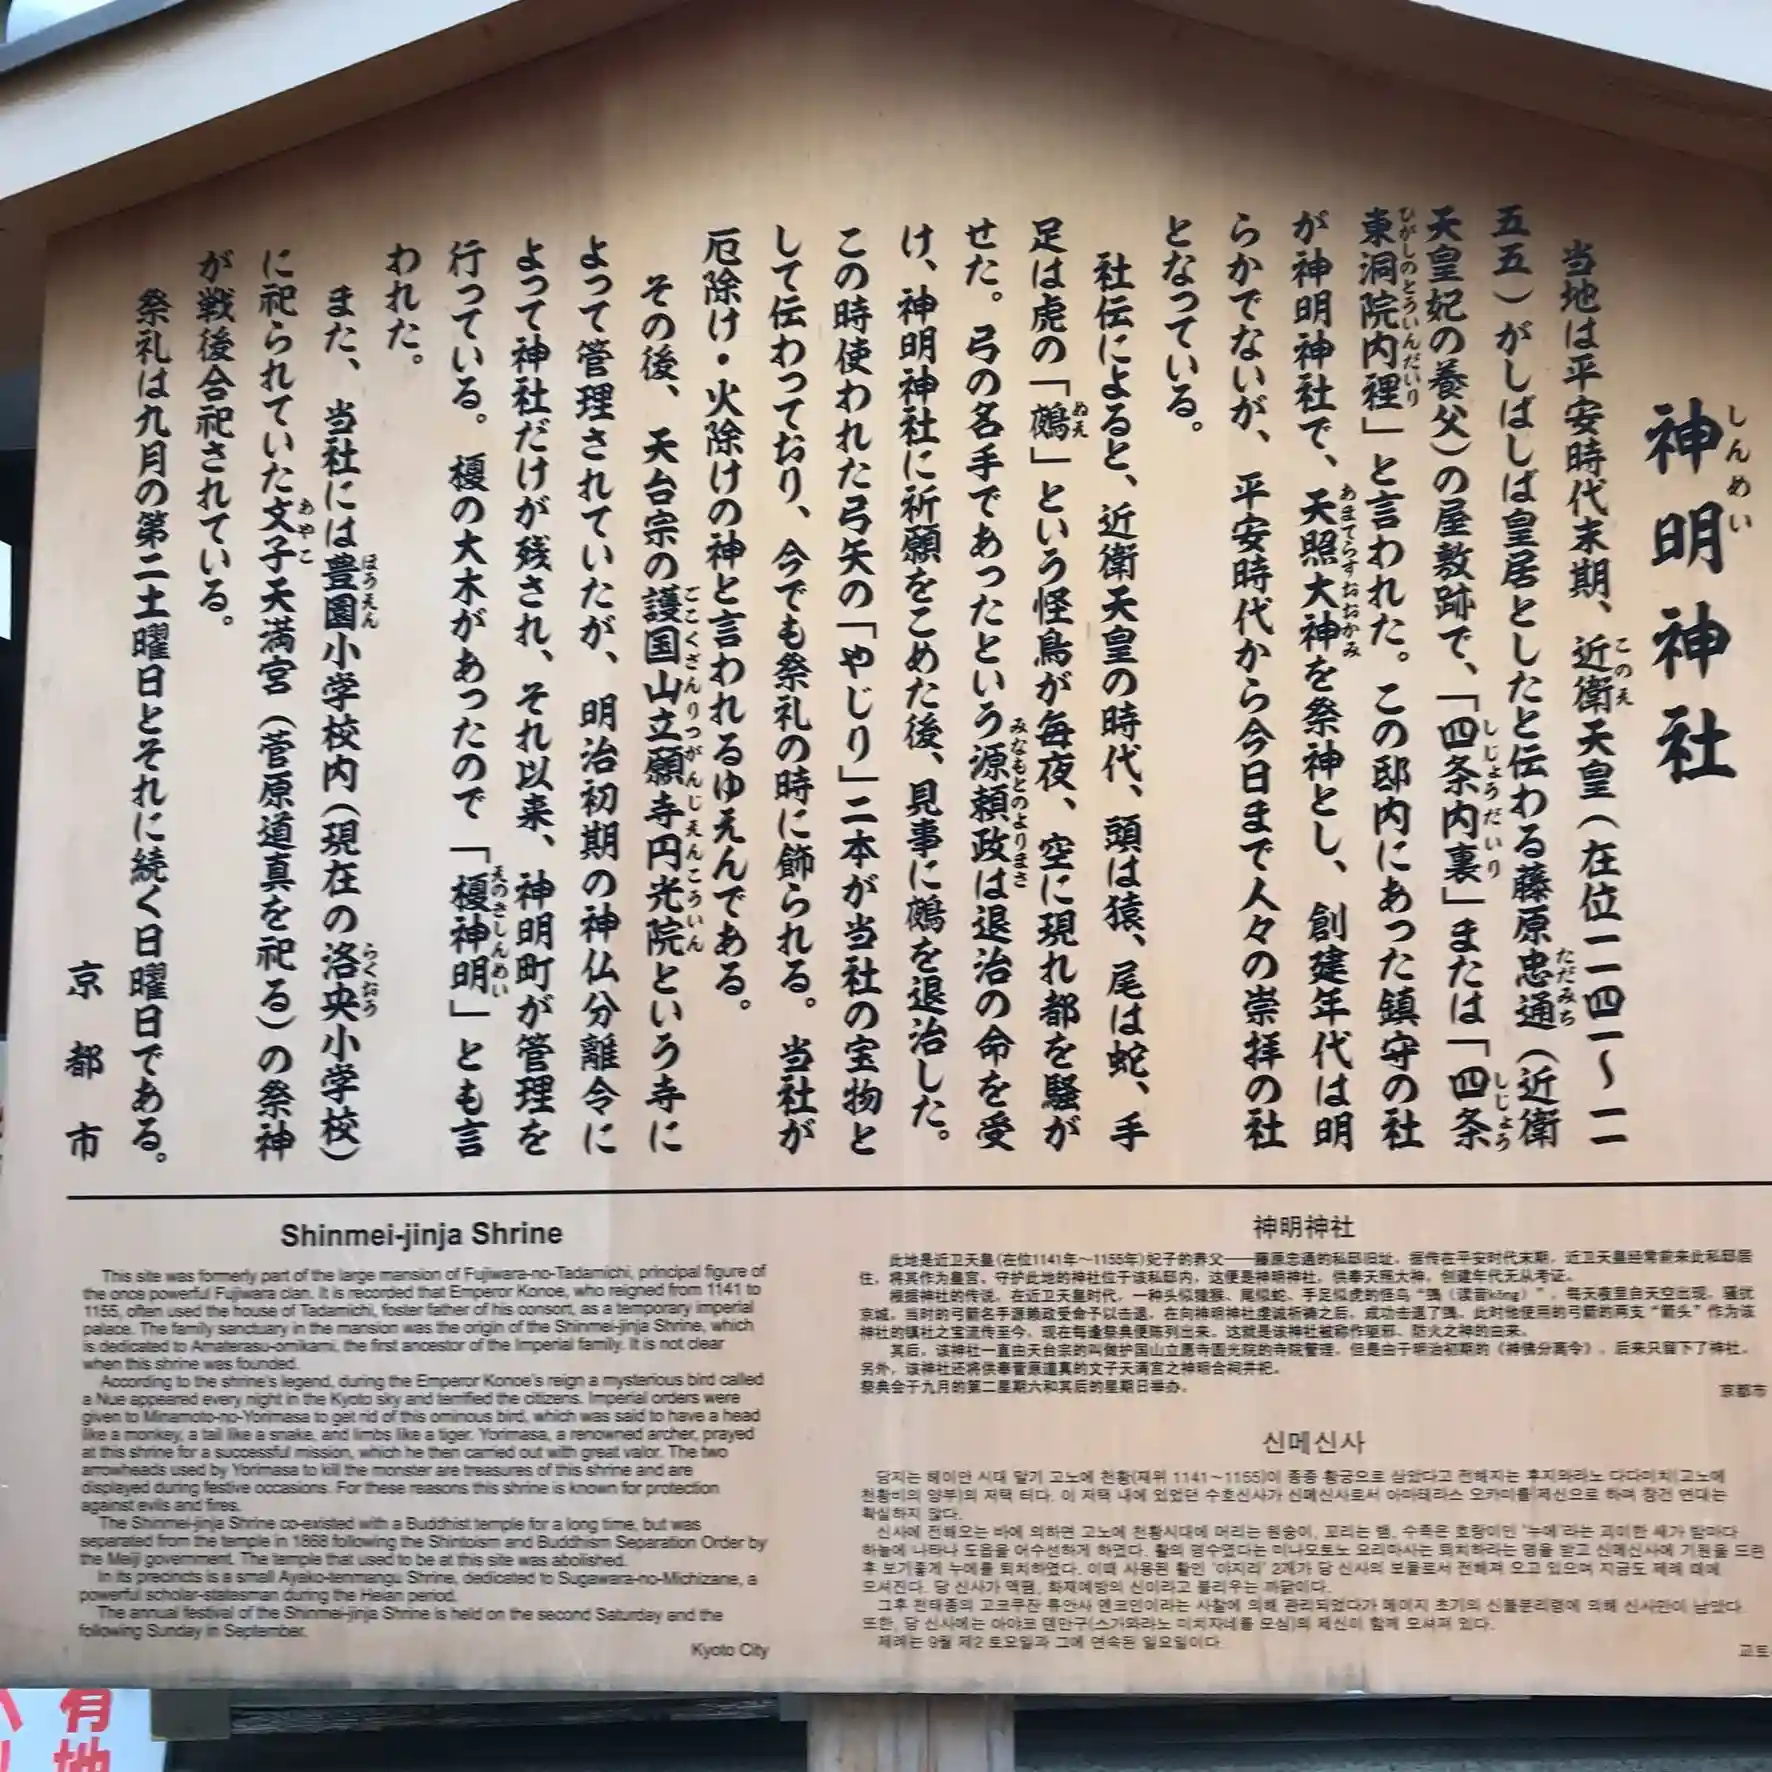 神明神社
しんめい
当地は平安時代末期、近衛天皇（在位一一四一〜一一
五五）がしばしば皇居としたと伝わる藤原忠通（近衛
天皇妃の養父）の屋敷跡で、「四条内裏」または「四条
東洞院内裡」と言われた。この邸内にあった鎮守の社
が神明神社で、天照大神を祭神とし、創建年代は明
らかでないが、平安時代から今日まで人々の崇拝の社
となっている。
社伝によると、近衛天皇の時代、頭は猿、尾は蛇、手
足は虎の「鵺」という怪鳥が毎夜、空に現れ都を騒が
せた。弓の名手であったという源頼政は退治の命を受
け、神明神社に祈願をこめた後、見事に鵺を退治した。
この時使われた弓矢の「やじり」二本が当社の宝物と
して伝わっており、今でも祭礼の時に飾られる。当社が
厄除け・火除けの神と言われるゆえんである。
その後、天台宗の護国山立願寺円光院という寺に
よって管理されていたが、明治初期の神仏分離令に
よって神社だけが残され、それ以来、神明町が管理を
行っている。榎の大木があったので「榎神明」とも言
われた。
また、当社には豊園小学校内（現在の洛央小学校）
に祀られていた文子天満宮（菅原道真を祀る）の祭神
が戦後合祀されている。
祭礼は九月の第二土曜日とそれに続く日曜日である。
京都市
Shinmei-jinja Shrine
This site was formerly part of the large mansion of Fujiwara-no-Tadamichi, principal figure of
the once powerful Fujiwara clan. It is recorded that Emperor Konoe, who reigned from 1141 to
1155, often used the house of Tadamichi, foster father of his consort, as a temporary imperial
palace. The family sanctuary in the mansion was the origin of the Shinmei-jinja Shrine, which
is dedicated to Amaterasu-omikami, the first ancestor of the Imperial family. It is not clear
when this shrine was founded.
According to the shrine's legend, during the Emperor Konoe's reign a mysterious bird called
a Nue appeared every night in the Kyoto sky and terrified the citizens. Imperial orders were
given to Minamoto-no-Yorimasa to get rid of this ominous bird, which was said to have a head
like a monkey, a tail like a snake, and limbs like a tiger. Yorimasa, a renowned archer, prayed
at this shrine for a successful mission, which he then carried out with great valor. The two
arrowheads used by Yorimasa to kill the monster are treasures of this shrine and are
displayed during festive occasions. For these reasons this shrine is known for protection
against evils and fires.
The Shinmei-jinja Shrine co-existed with a Buddhist temple for a long time, but was
separated from the temple in 1868 following the Shintoism and Buddhism Separation Order by
the Meiji government. The temple that used to be at this site was abolished.
In its precincts is a small Ayako-tenmangu Shrine, dedicated to Sugawara-no-Michizane, a
powerful scholar-statesman during the Heian period.
The annual festival of the Shinmei-jinja Shrine is held on the second Saturday and the
following Sunday in September.
Kyoto City
神明神社
此地是近卫天皇(在位1141年～1155年)妃子的养父——藤原忠通的私邸旧址，据传在平安时代末期，近卫天皇经常前来此私邸居
住，将其作为皇宫。守护此地的神社位于该私邸内，这便是神明神社，供奉天照大神，创建年代无从考证。
根据神社的传说，在近卫天皇时代，一种头似猿猴、尾似蛇、手足似虎的怪鸟“鵼（读音kōng）”，每天夜里自天空出现，骚扰
京城，当时的弓箭名手源赖政受命予以击退，在向神明神社虔诚祈祷之后，成功击退了鵼，此时他使用的弓箭的两支“箭头”作为该
神社的镇社之宝流传至今，现在每逢祭典便陈列出来。这就是该神社被称作驱邪、防火之神的由来。
其后，该神社一直由天台宗的叫做护国山立愿寺圆光院的寺院管理，但是由于明治初期的《神佛分离令》，后来只留下了神社。
另外，该神社还将供奉菅原道真的文子天满宫之神明合祠并祀。
祭典会于九月的第二星期六和其后的星期日举办。
京都市
신메신사
당지는 헤이안 시대 말기 고노에 천황(재위 1141～1155)이 종종 황궁으로 삼았다고 전해지는 후지와라노 다다미치(고노에
천황비의 양부)의 저택 터다. 이 저택 내에 있었던 수호신사가 신메신사로서 아마테라스 오카미를 제신으로 하며 창건 연대는
확실하지 않다.
신사에 전해오는 바에 의하면 고노에 천황시대에 머리는 원숭이, 꼬리는 뱀, 수족은 호랑이인 '누에'라는 괴이한 새가 밤마다
하늘에 나타나 도읍을 어수선하게 하였다. 활의 명수였다는 미나모토노 요리마사는 퇴치하라는 명을 받고 신메신사에 기원을 드린
후 보기좋게 누에를 퇴치하였다. 이때 사용된 활인 '야지리' 2개가 당 신사의 보물로서 전해져 오고 있으며 지금도 제례 때에
모셔진다. 당 신사가 액땜, 화재예방의 신이라고 불리우는 까닭이다.
그후 천태종의 고코쿠잔 류안사 엔코인이라는 사찰에 의해 관리되었다가 메이지 초기의 신불분리령에 의해 신사만이 남았다.
또한, 당 신사에는 아야코 덴만구(스가와라노 미치자네를 모심)의 제신이 함께 모셔져 있다.
제례는 9월 제2 토요일과 그에 연속된 일요일이다.
교토
有地